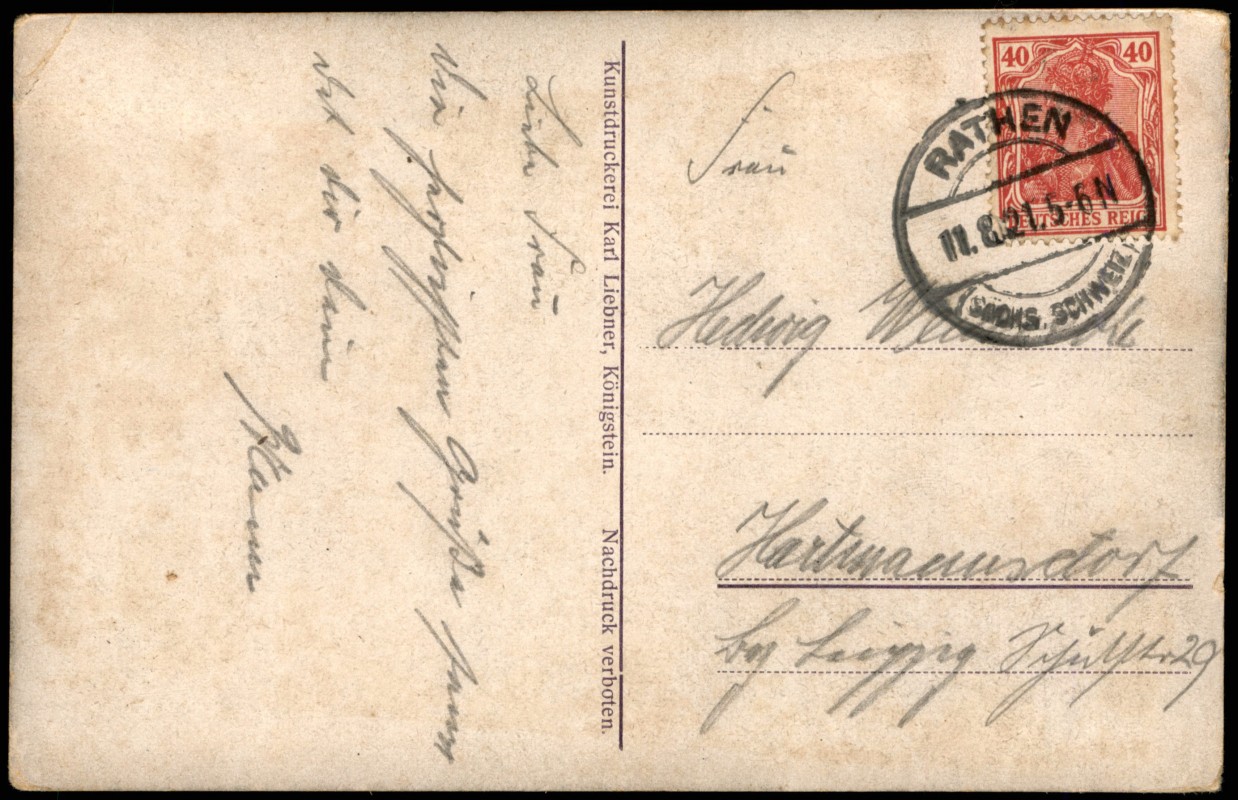 Liebe Frau
Die herzlichsten Grüße
dir dein
Mann
Kunstdruckerei Karl Liebner, Königstein. Nachdruck verboten.
40 40
DEUTSCHES REICH
RATHEN
11.8.21. 5-6 N
(SÄCHS. SCHWEIZ)
Frau
Hedwig
Hartmannsdorf
bei Leipzig Schulstr 29